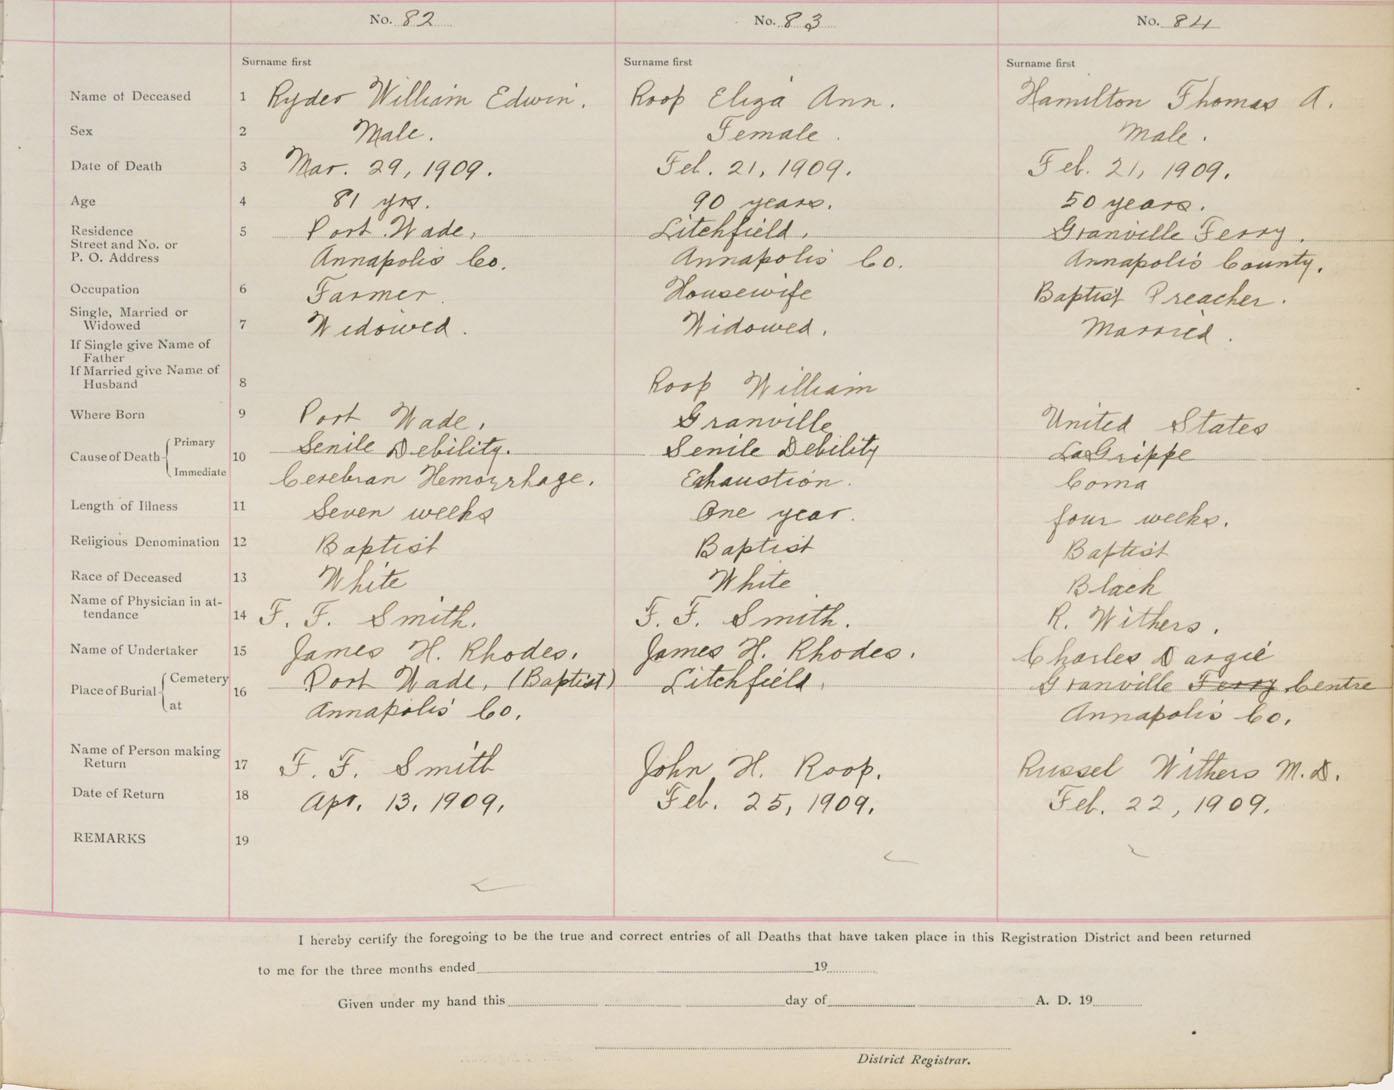 No. 82 No. 83 No. 84
Surname first Surname first Surname first
Name of Deceased 1 Ryder William Edwin. Roop Eliza Ann. Hamilton Thomas A.
Sex 2 Male. Female. Male.
Date of Death 3 Mar. 29, 1909. Feb. 21, 1909. Feb. 21, 1909.
Age 4 81 yrs. 90 years. 50 years.
Residence 5 Port Wade, Litchfield, Granville Ferry.
Street and No. or
P. O. Address Annapolis Co. Annapolis Co. Annapolis County.
Occupation 6 Farmer. Housewife Baptist Preacher.
Single, Married or
Widowed 7 Widowed. Widowed. Married.
If Single give Name of
Father
If Married give Name of
Husband 8 Roop William
Where Born 9 Port Wade, Granville United States
Cause of Death Primary 10 Senile Debility. Senile Debility LaGrippe
Immediate Cerebran Hemorrhage. Exhaustion. Coma
Length of Illness 11 Seven weeks One year. four weeks.
Religious Denomination 12 Baptist Baptist Baptist
Race of Deceased 13 White White Black
Name of Physician in at-
tendance 14 F. F. Smith. F. F. Smith. R. Withers.
Name of Undertaker 15 James H. Rhodes. James H. Rhodes. Charles Dargie
Place of Burial Cemetery 16 Port Wade, (Baptist) Litchfield, Granville Ferry Centre
at Annapolis Co. Annapolis Co.
Name of Person making
Return 17 F. F. Smith John H. Roop. Russel Withers M.D.
Date of Return 18 Apr. 13, 1909. Feb. 25, 1909. Feb. 22, 1909.
REMARKS 19
I hereby certify the foregoing to be the true and correct entries of all Deaths that have taken place in this Registration District and been returned
to me for the three months ended 19
Given under my hand this day of A. D. 19
District Registrar.